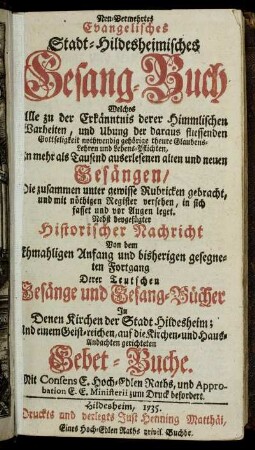 Neu-Vermehrtes
Evangelisches
Stadt-Hildesheimisches
Gesang-Buch
Welches
Alle zu der Erkänntnis derer Himmlischen
Warheiten, und Ubung der daraus fliessenden
Gottseligkeit nothwendig gehörige theure Glaubens-
Lehren und Lebens-Pflichten,
In mehr als Tausend auserlesenen alten und neuen
Gesängen/
Die zusammen unter gewisse Rubricken gebracht,
und mit nöthigen Register versehen, in sich
fasset und vor Augen leget.
Nebst beygefügter
Historischer Nachricht
Von dem
ehmahligen Anfang und bisherigen gesegne-
ten Fortgang
Derer Teutschen
Gesänge und Gesang-Bücher
In
Denen Kirchen der Stadt Hildesheim;
Und einem Geist-reichen, auf die Kirchen-und Haus-
Andachten gerichteten
Gebet-Buche.
Mit Consens E. Hoch-Edlen Raths, und Appro-
bation E. E. Ministerii zum Druck befordert.
Hildesheim, 1735.
Druckts und verlegts Just Henning Matthäi,
Eines Hoch-Edlen Raths privil. Buchdr.